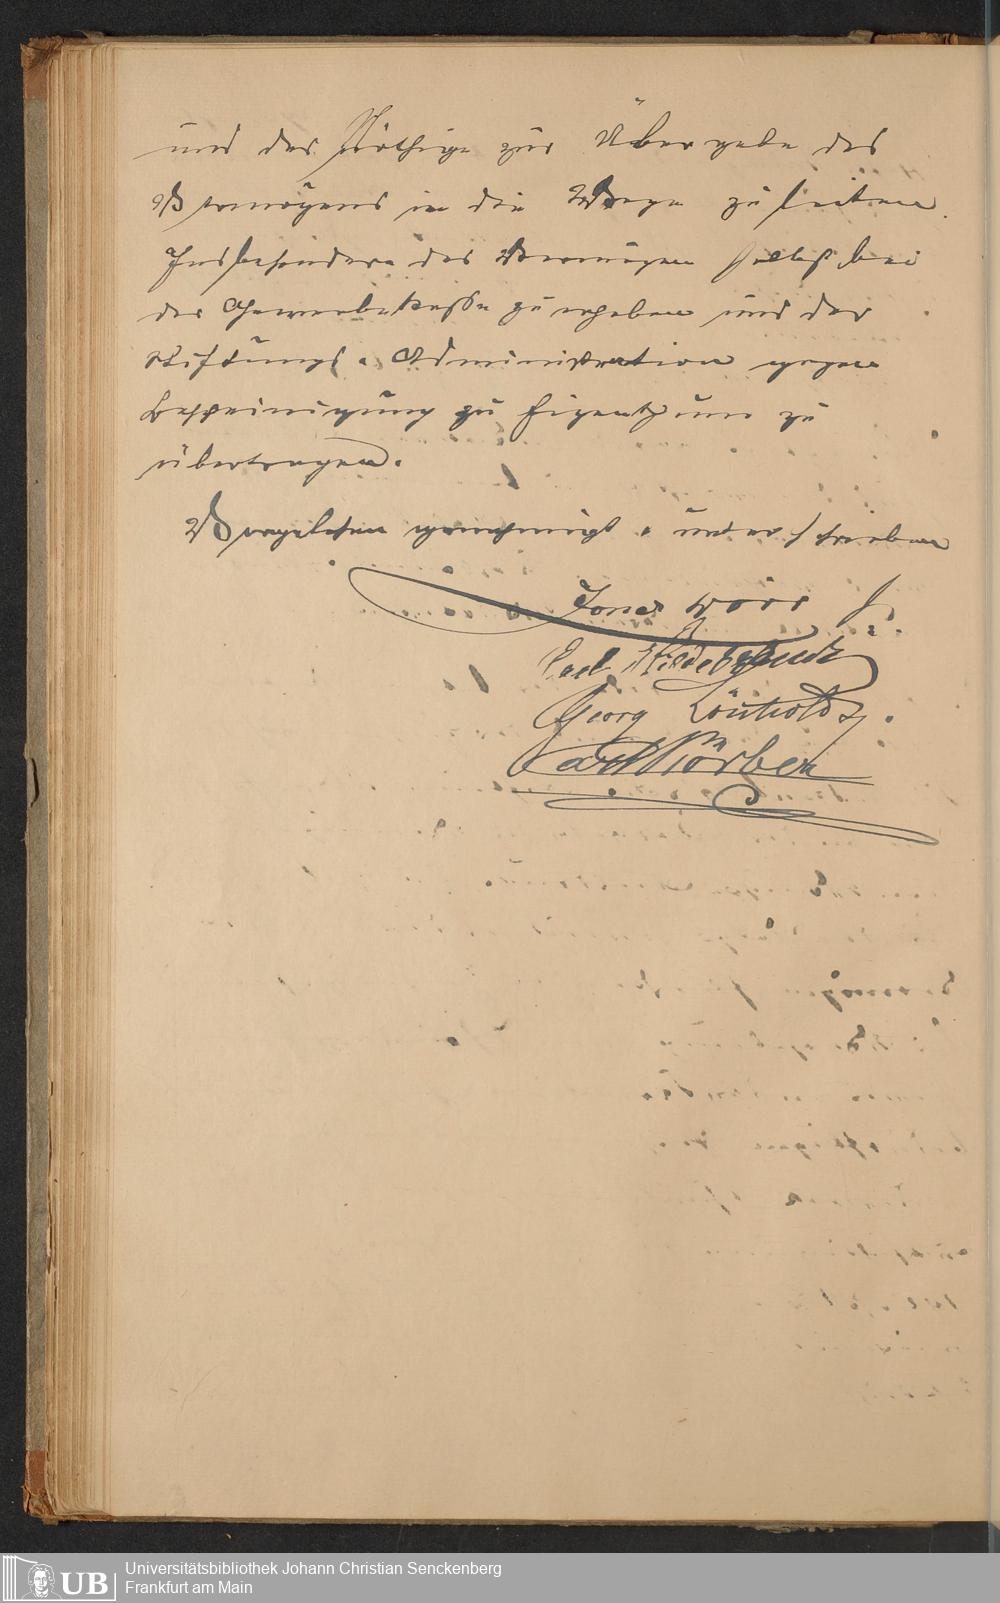 und das Nöthige zur Übergabe des
Vermögens in die Wege zu leiten.
Insbesondere das Vermögen selbst bei
der Gewerbekasse zu erheben und der
Stiftungs-Administration gegen
Bescheinigung zu Eigenthum zu
übertragen.
Vorgelesen genehmigt u. unterschrieben
Jonas Dörr
Carl Hildebrandt
Georg Löuholdt
Carl Körber
Universitätsbibliothek Johann Christian Senckenberg
Frankfurt am Main
UB